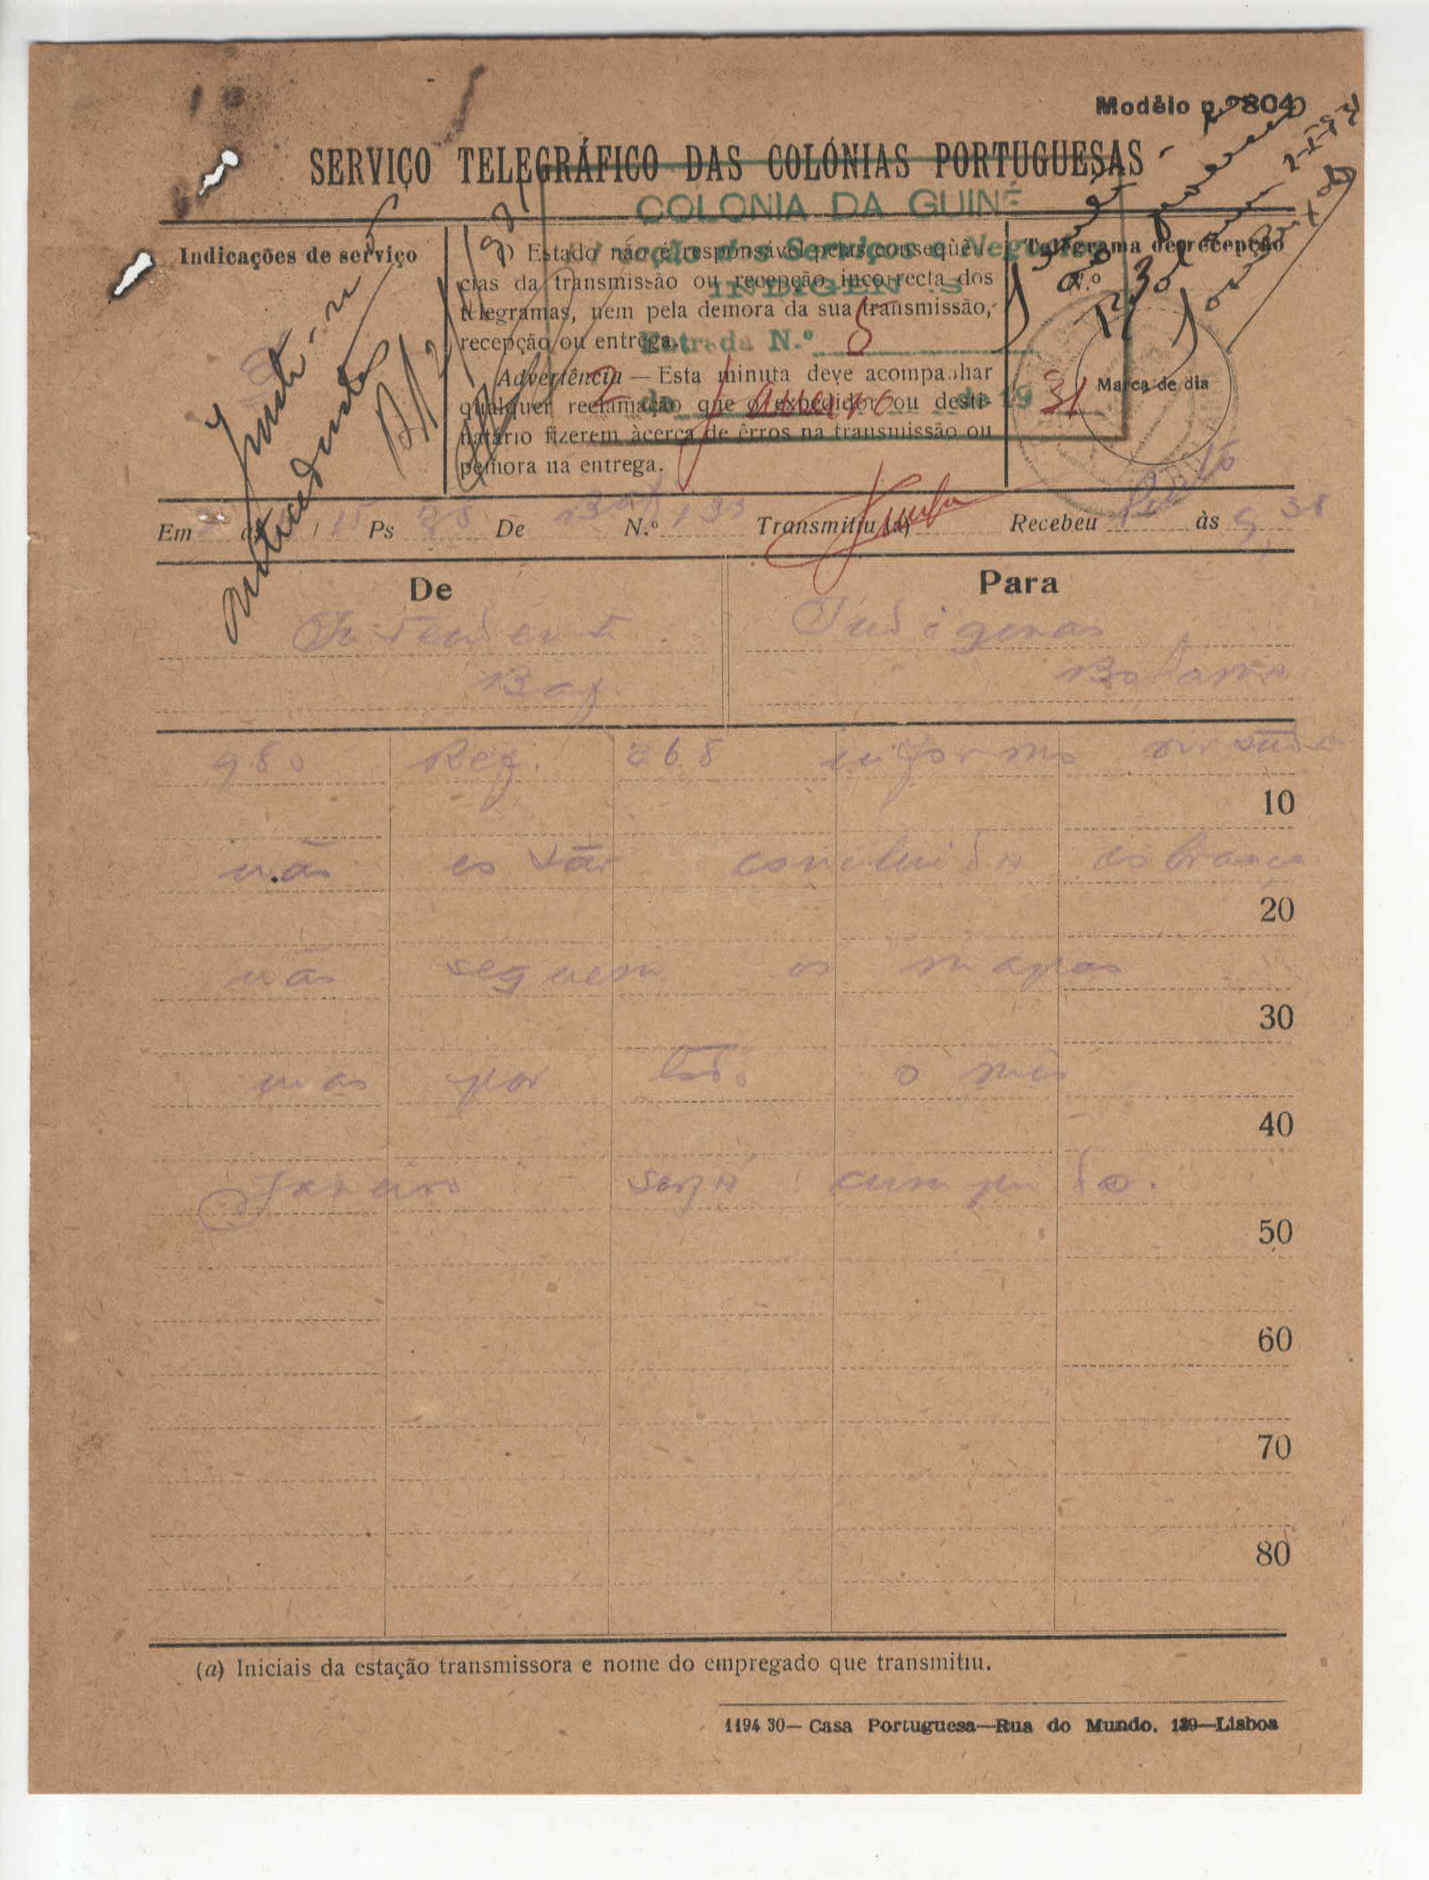 Modêlo n.º 804
SERVIÇO TELEGRÁFICO DAS COLÓNIAS PORTUGUESAS
COLONIA DA GUINÉ
Indicações de serviço
O Estado não é responsável pelas conseqüên-
cias da transmissão ou recepção incorrecta dos
telegramas, nem pela demora da sua transmissão,
recepção ou entrega.
Advertência — Esta minuta deve acompanhar
qualquer reclamação que o expedidor ou desti-
natário fizerem àcerca de êrros na transmissão ou
demora na entrega.
Telegrama de recepção
N.º
Marca de dia
Direcção dos Serviços e Negócios
INDIGENAS
Entrada N.º 5
2 de Janeiro de 1931
Em às 15 Ps 28 De Baf N.º 133 Transmitiu (a) Recebeu às 9,38
De
Para
Intendente
Indigenas
Baf
Bolama
980 Ref. 268 informo virtude
não estar concluida cobrança
não seguem os mapas
mas por todo o mês
Janeiro será cumprido.
10
20
30
40
50
60
70
80
(a) Iniciais da estação transmissora e nome do empregado que transmitiu.
1194 30— Casa Portuguesa—Rua do Mundo, 139—Lisboa